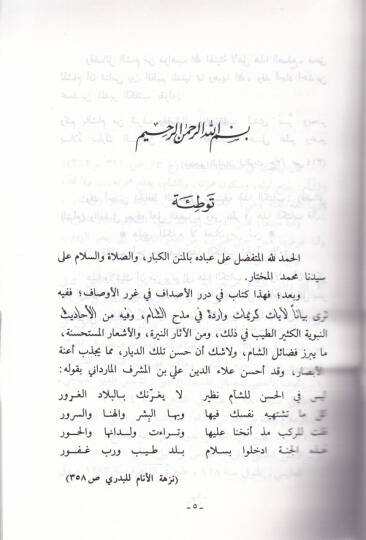 بسم الله الرحمن الرحيم
توطئة
الحمد لله المتفضل على عباده بالمنن الكبار، والصلاة والسلام على
سيدنا محمد المختار.
وبعد؛ فهذا كتاب في درر الأصداف في غرر الأوصاف؛ ففيه
ترى بياناً لآيات كريمات واردة في مدح الشام، وفيه من الأحاديث
النبوية الكثير الطيب في ذلك، ومن الآثار النيرة، والأشعار المستحسنة،
ما يبرز فضائل الشام، ولاشك أن حسن تلك الديار، مما يجذب أعنة
الأبصار، وقد أحسن علاء الدين علي بن المشرف المارداني بقوله:
ليس في الحسن للشآم نظير لا يغرّنك بالبلاد الغرور
كل ما تشتهيه نفسك فيها وبها البِشر والهنا والسرور
قلت للركب مذ أنخنا عليها وتراءت ولدانها والحور
هذه الجنة ادخلوا بسلام بلد طيب ورب غفور
(نزهة الأنام للبدري ص ٣٥٨)
- ٥ -